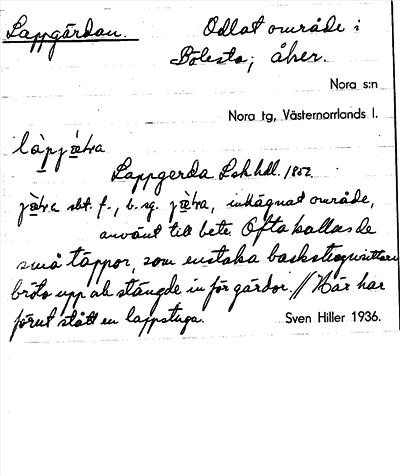 Lappgärdan. Odlat område i
Bölesta; åker.
Nora s:n
Nora tg, Västernorrlands l.
làpjæ̀ra
Lappgerda Lskhdl. 1852.
sbt. f., b. sg. inhägnat område,
använt till bete. Ofta kallas de
små täppor, som enstaka backstugusittare
bröto upp och stängde in för gärdor. // Här har
förut stått en lappstuga.
Sven Hiller 1936.